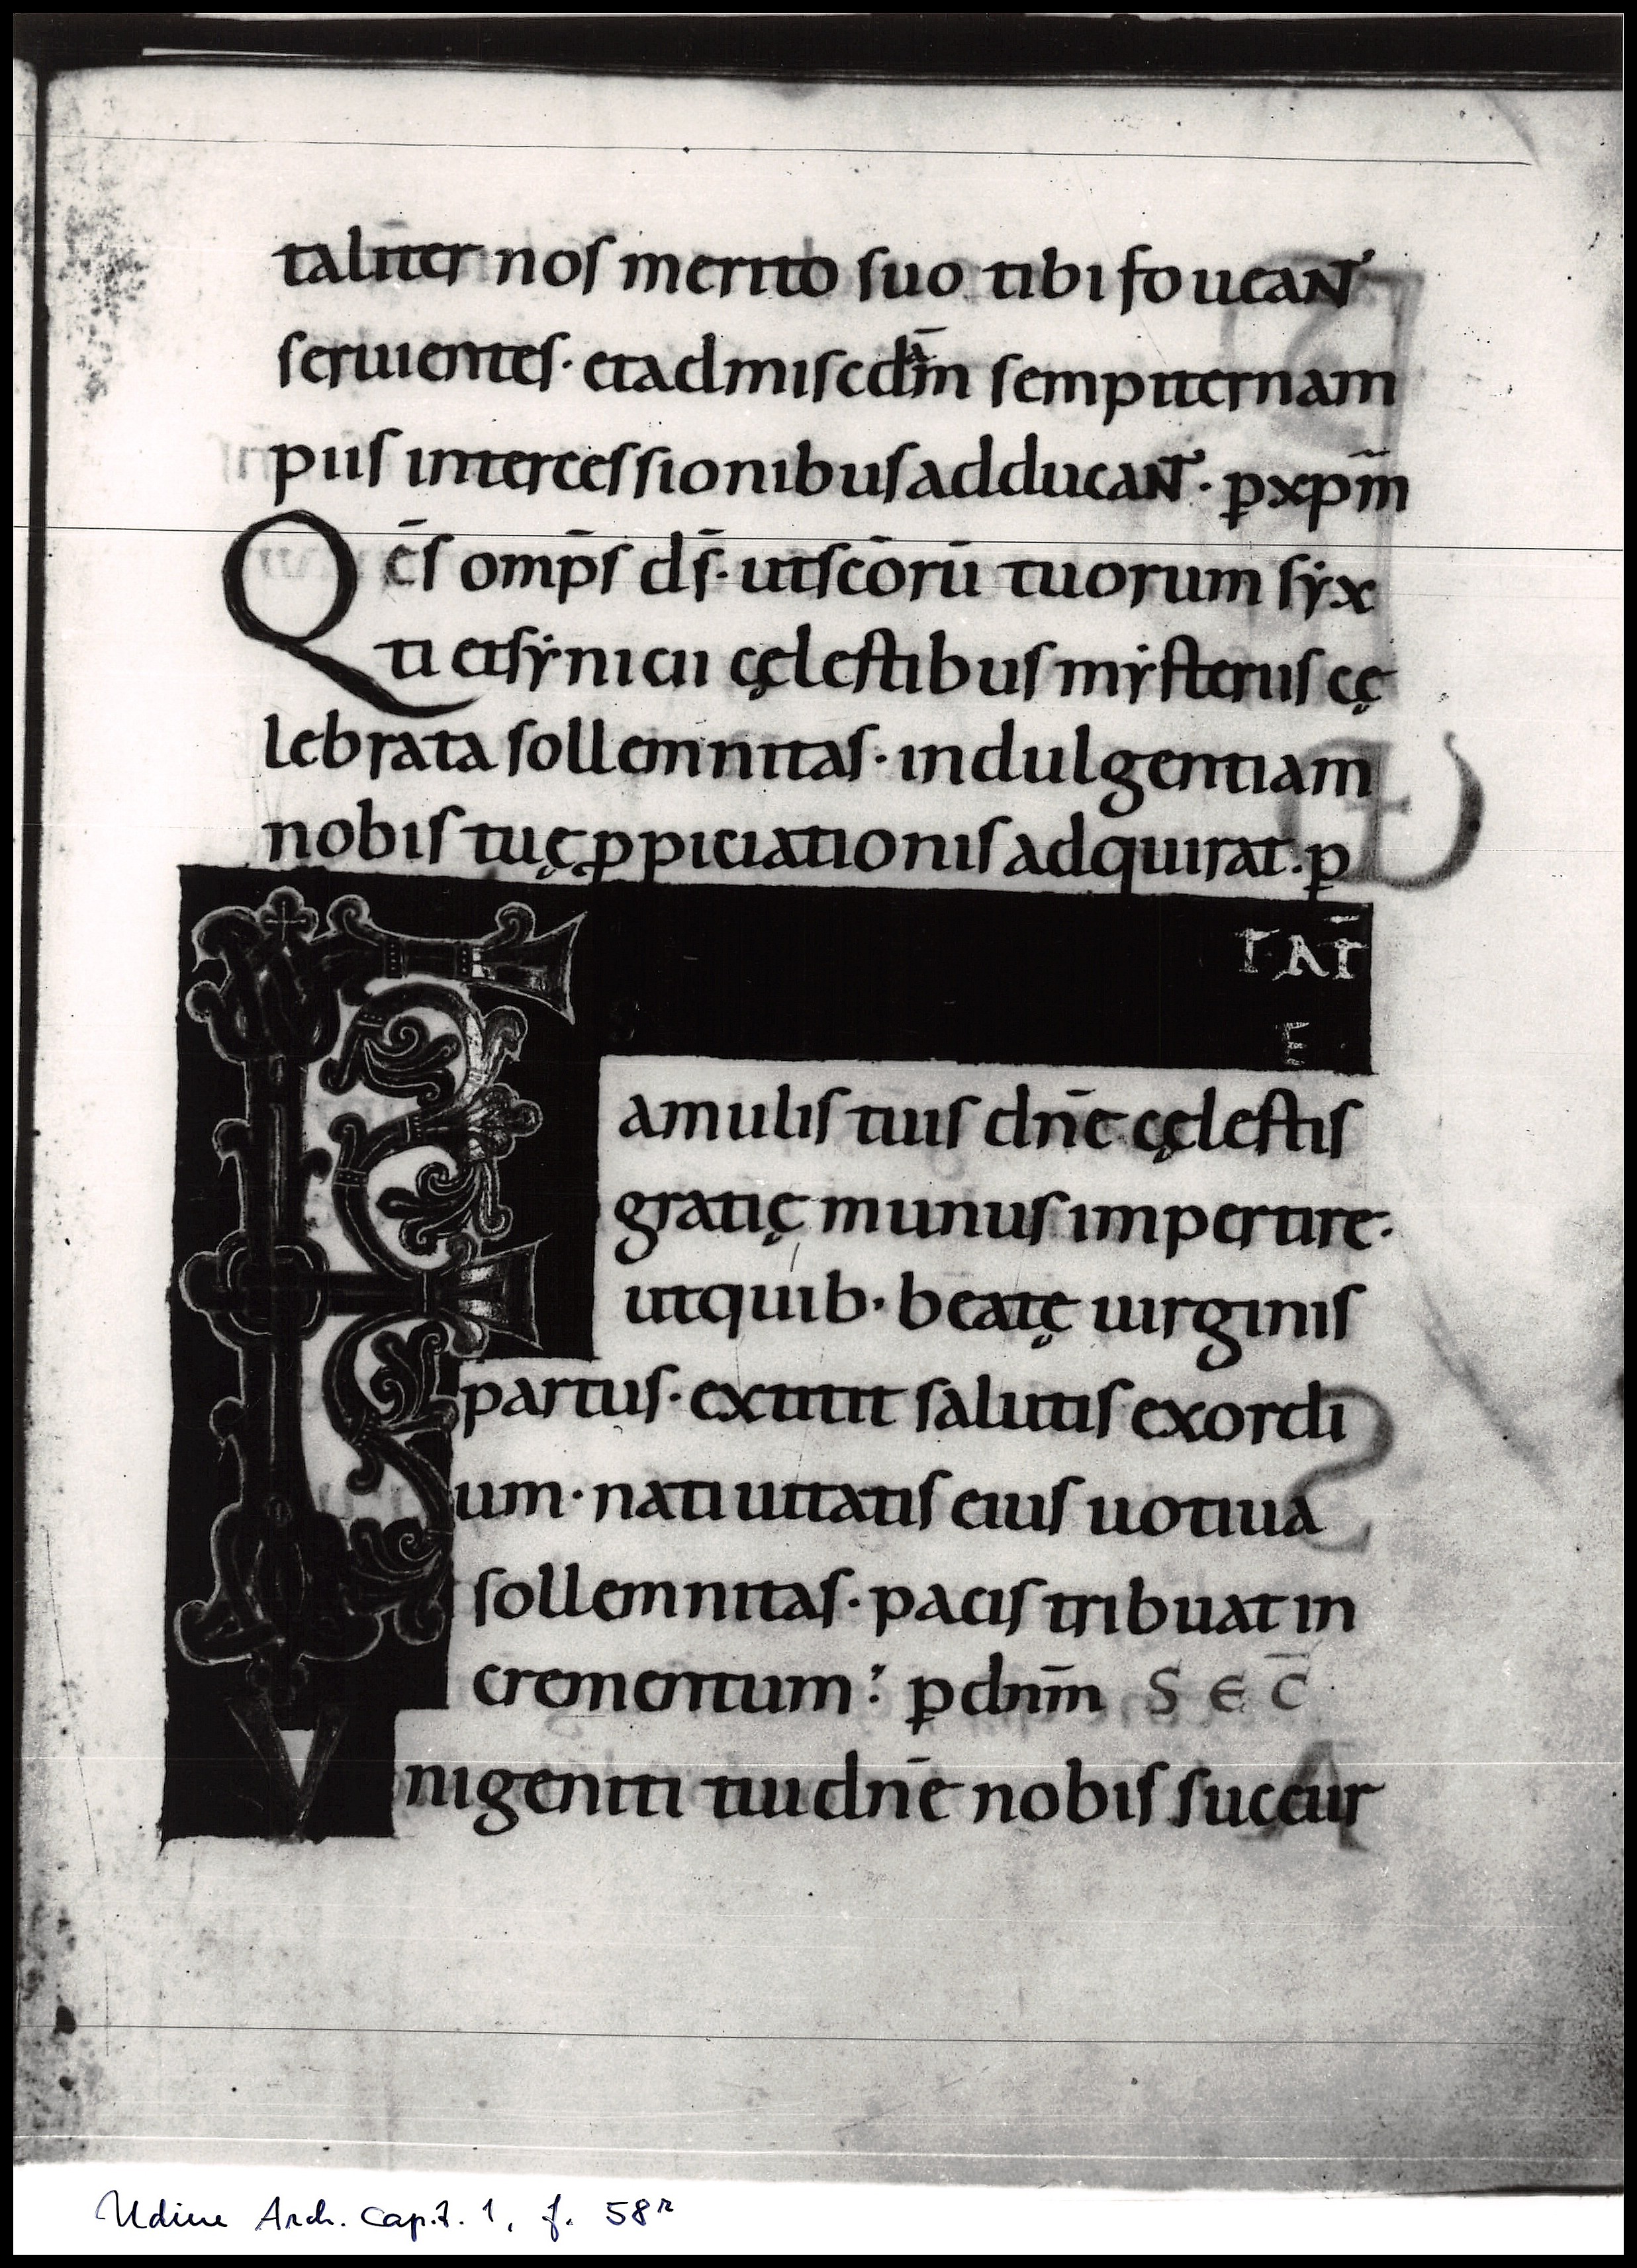 taliter nos merito suo tibi foueant
seruientes· et ad misedām sempiternam
piis intercessionibus adducant· ꝑ xp̄m
Q̄es omp̄s ds̄· ut scōrū tuorum syx
ti et synicii cęlestibus mysteriis cę
lebrata sollemnitas· indulgentiam
nobis tuę ꝓpiciationis adquirat· ꝑ
TAT̄
E
Famulis tuis dn̄e cęlestis
gratię munus impertire·
ut quib· beatę uirginis
partus· extitit salutis exordi
um· natiuitatis eius uotiua
sollemnitas· pacis tribuat in
crementum: ꝑ dnm̄ SEC̄
Vnigeniti tui dn̄e nobis succur
Udine Arch. Capit. 1, f. 58r